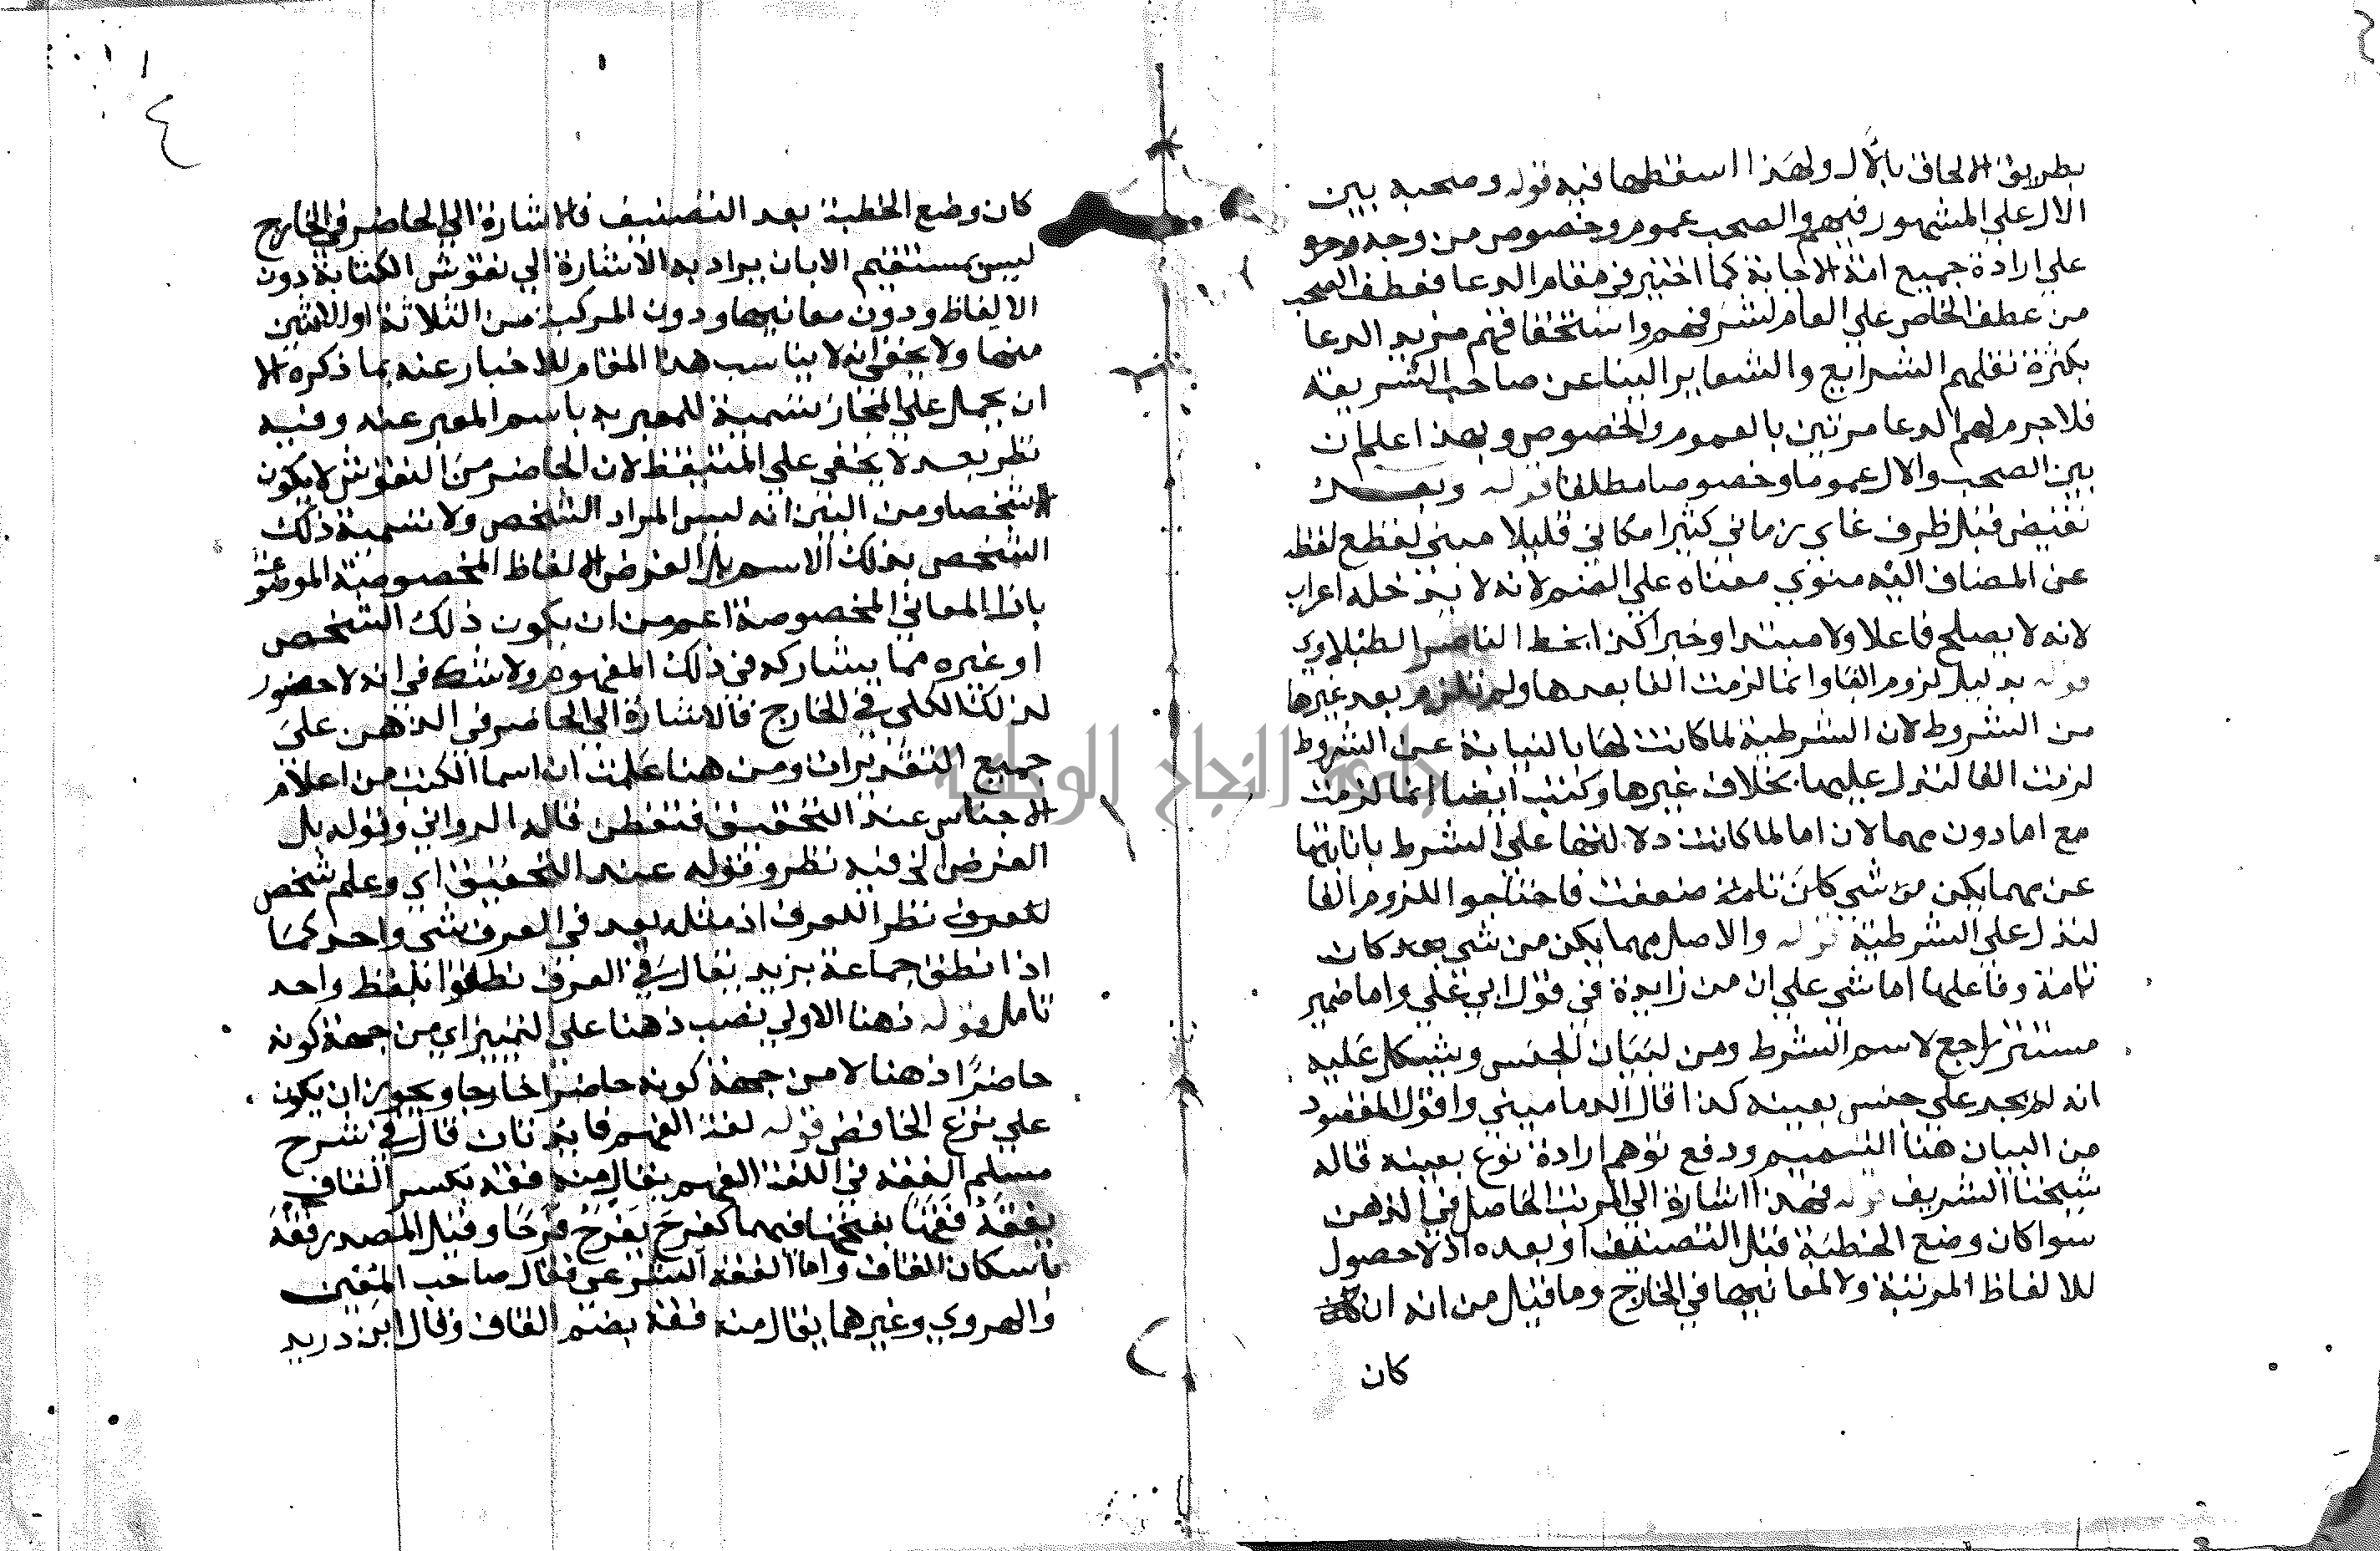 بطريق الالحاق بالآل ولهذا اسقطها فيه قوله وصحبه بين
الال علي المشهور فيهم والصحب عموم وخصوص من وجه وهو
علي ارادة جميع امة الاجابة كما اختير في مقام الدعا فعطف الصحب
من عطف الخاص علي العام لشرفهم واستحقاقهم مزيد الدعا
بكثرة نقلهم الشرايع والشعاير الينا عن صاحب الشريعة
فلا جرم لهم الدعا مرتين بالعموم والخصوص وبهذا اعلم ان
بين الصحب والال عموما وخصوصا مطلقا قوله وبعد
نقيض قبل ظرف غاي زماني كثيرا مكاني قليلا مبني لقطع لفظه
عن المضاف اليه منوي معناه علي الضم لانه لا يدخله اعراب
لانه لا يصلح فاعلا ولا مبتدا وخبرا كذا بخط الناصر الطبلاوي
قوله بدليل لزوم الفا وانما لزمت الفا بعدها ولم تلزم بعد غيرها
من الشروط لان الشرطية لما كانت لها بالنيابة عن الشروط
لزمت الفا لتدل عليها بخلاف غيرها وكتب ايضا انما لزمت
مع اما دون مهما لان اما لما كانت دلالتها علي الشرط بانابتها
عن مهما يكن من شي كان تامة ضعفت فاحتاجوا للزوم الفا
لتدل علي الشرطية قوله والاصل مهما يكن من شي بعد كان
تامة وفاعلها اما شي علي ان من زايدة في قول ابي علي واما ضمير
مستتر راجع لاسم الشرط ومن لبيان الجنس ويشكل عليه
انه لم يجد علي جنس بعينه كذا قال الدماميني واقول المقصود
من البيان هنا التعميم ودفع توهم ارادة نوع بعينه قاله
شيخنا الشريف قوله فهذا اشارة الي المرتب الحاصل في الذهن
سوا كان وضع الخطبة قبل التصنيف او بعده اذ لا حصول
للالفاظ المرتبة ولا لمعانيها في الخارج وما قيل من انه ان
كان
كان وضع الخطبة بعد التصنيف فالاشارة الي الحاضر في الخارج
ليس بمستقيم الا بان يراد به الاشارة الي نقوش الكتابة دون
الالفاظ ودون معانيها ودون المركب من الثلاثة او الاثنين
منها ولا يخفي انه لا يناسب هذا المقام للاخبار عنه بما ذكره الا
ان يحمل علي المجاز تسمية للمعبر به باسم المعبر عنه وفيه
نظر بعد لا يخفي علي المتيقظ لان الحاضر من النقوش لا يكون
الا شخصا ومن البين انه ليس المراد الشخص ولا تسمية ذلك
الشخص بذلك الاسم بل الغرض الالفاظ المخصوصة الموضوعة
بازا المعاني المخصوصة اعم من ان يكون ذلك الشخص
او غيره مما يشاركه في ذلك المفهوم ولا شك في انه لا حضور
لذلك الكلي في الخارج فالاشارة الي الحاضر في الذهن علي
جميع التقديرات ومن هنا علمت ان اسما الكتب من اعلام
الاجناس عند التحقيق فتفطن قاله الدواني وقوله بل
الغرض الخ فيه نظر وقوله عند التحقيق اي وعلم شخص
نظر العرف اذ مثله يعد في العرف شي واحد كما
اذا نطق جماعة بزيد يقال في العرف نطقوا بلفظ واحد
تامل قوله ذهنا الاولي نصب ذهنا علي التمييز اي من جهة كونه
حاضرًا ذهنا لا من جهة كونه حاضرا خارجا ويجوز ان يكون
علي نزع الخافض قوله لغة الفهم فايدتان قال في شرح
مسلم الفقه في اللغة الفهم يقال منه فقه بكسر القاف
يفقَهُ فقَهًا بفتحها فيهما كفرِحَ يَفرَحُ فَرَحًا وقيل المصدر فقْهًا
باسكان القاف واما الفقه الشرعي فقال صاحب العين
والهروي وغيرهما يقال منه فقه بضم القاف وقال ابن دريد